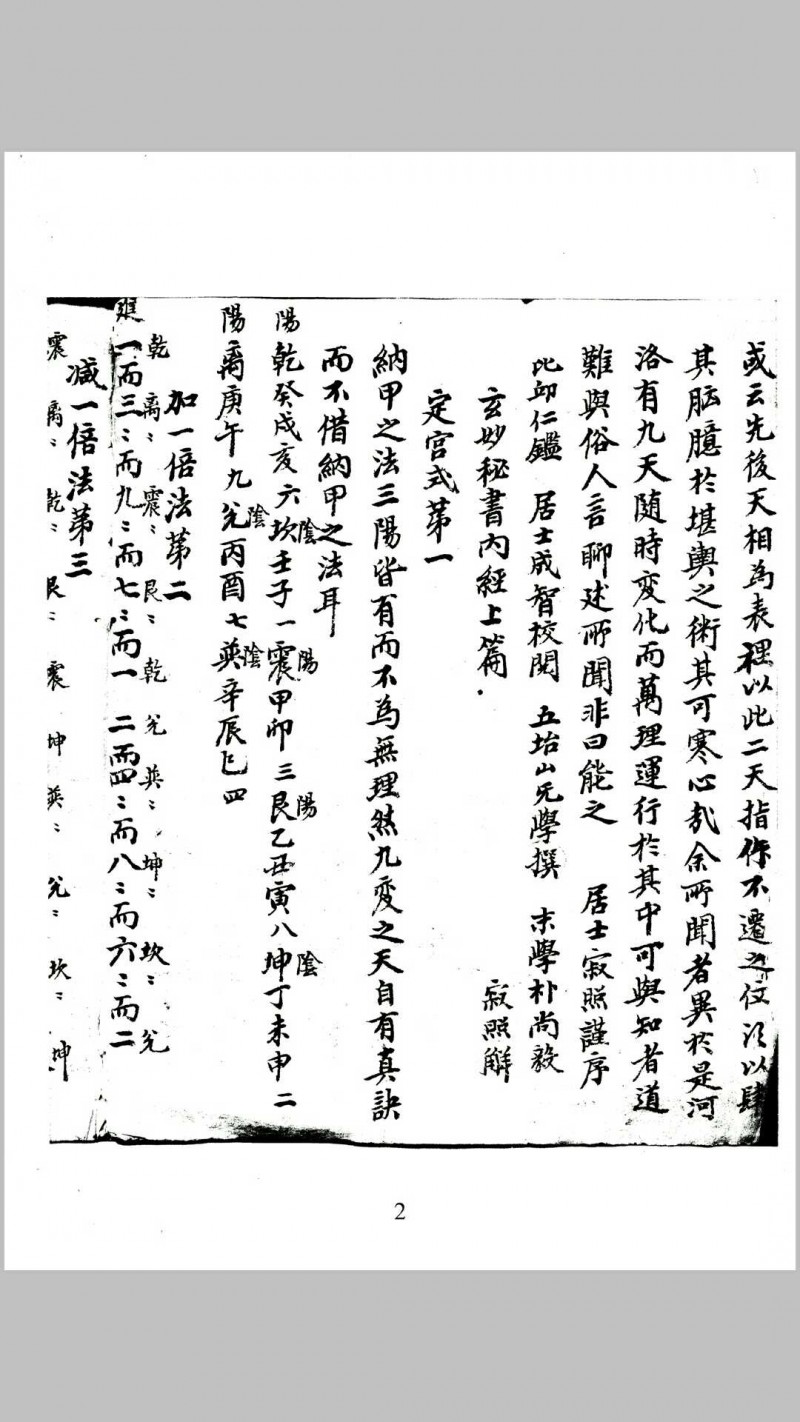 或云先後天相為表裡以此二天指作不遷之位須以肆
其胸臆於堪輿之術其可寒心哉余所聞者異於是河
洛有九天随時変化而萬理運行於其中可與知者道
難與俗人言聊述所聞非曰能之 居士寂照謹序
比卭仁鑑 居士成智校閱 五坮山无學撰 末學朴尚毅
玄妙秘書內經上篇 寂照解
定宮式第一
納甲之法三陽皆有而不為無理然九変之天自有真訣
而不借納甲之法耳
陽乾癸戌亥六陰坎壬子一陽震甲卯三陽艮乙丑寅八陰坤丁未申二
陽离庚午九陰兊丙酉七陰巽辛辰巳四
加一倍法第二
乾 离〻 震〻 艮〻 乾 兊 巽〻 坤〻 坎〻 兊
一而三〻而九〻而七〻而一 二而四〻而八〻而六〻而二
减一倍法第三
震 离〻 乾〻 艮〻 震 坤 巽〻 兊〻 坎〻 坤
2